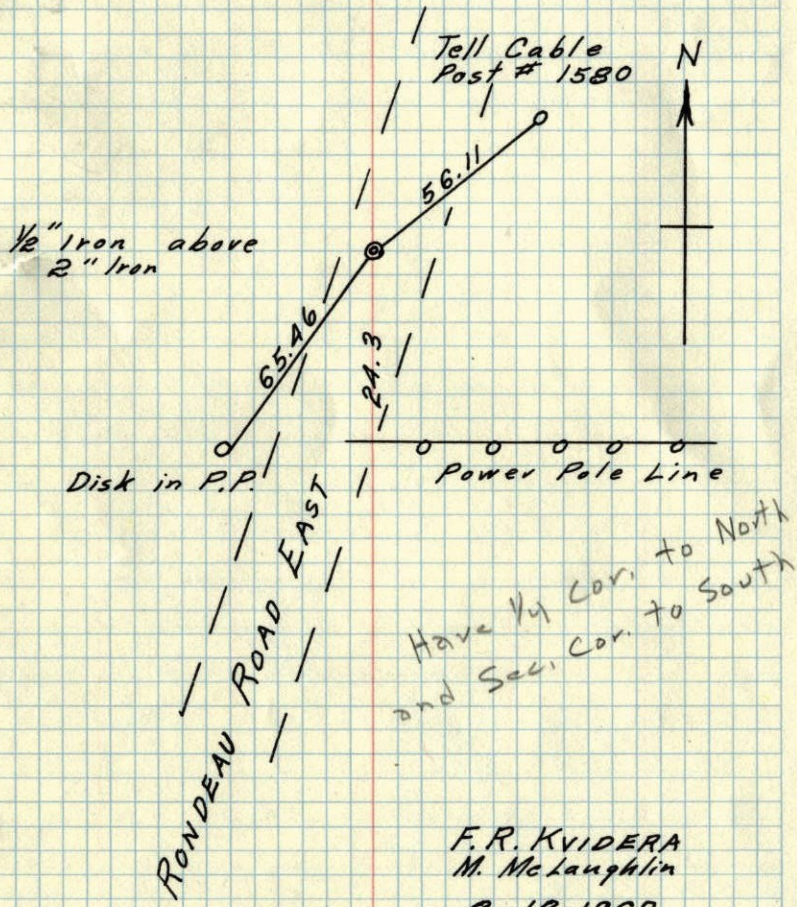 Tell Cable
Post # 1580
N
56.11
1/2" Iron above
2" Iron
65.46
24.3
Disk in P.P.
Power Pole Line
RONDEAU ROAD EAST
Have 1/4 Cor. to North
and Sec. Cor. to South
F.R. KVIDERA
M. McLaughlin